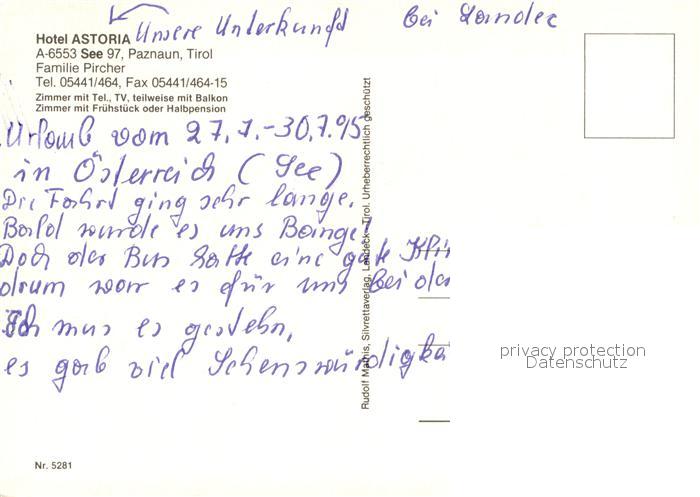 Unsere Unterkunft bei Landec
Hotel ASTORIA
A-6553 See 97, Paznaun, Tirol
Familie Pircher
Tel. 05441/464, Fax 05441/464-15
Zimmer mit Tel., TV, teilweise mit Balkon
Zimmer mit Frühstück oder Halbpension
Urlaub vom 27.7.-30.7.95
in Österreich (See)
Die Fahrt ging sehr lange.
Bald wurde es uns Bange!
Doch der Bus hatte eine gute Kli
drum war es für uns bei der
Ich mus es gestehn,
es gab viel Sehenswürdigke
Rudolf Mathis, Silvrettaverlag, Landeck-Tirol. Urheberrechtlich geschützt
privacy protection
Datenschutz
Nr. 5281